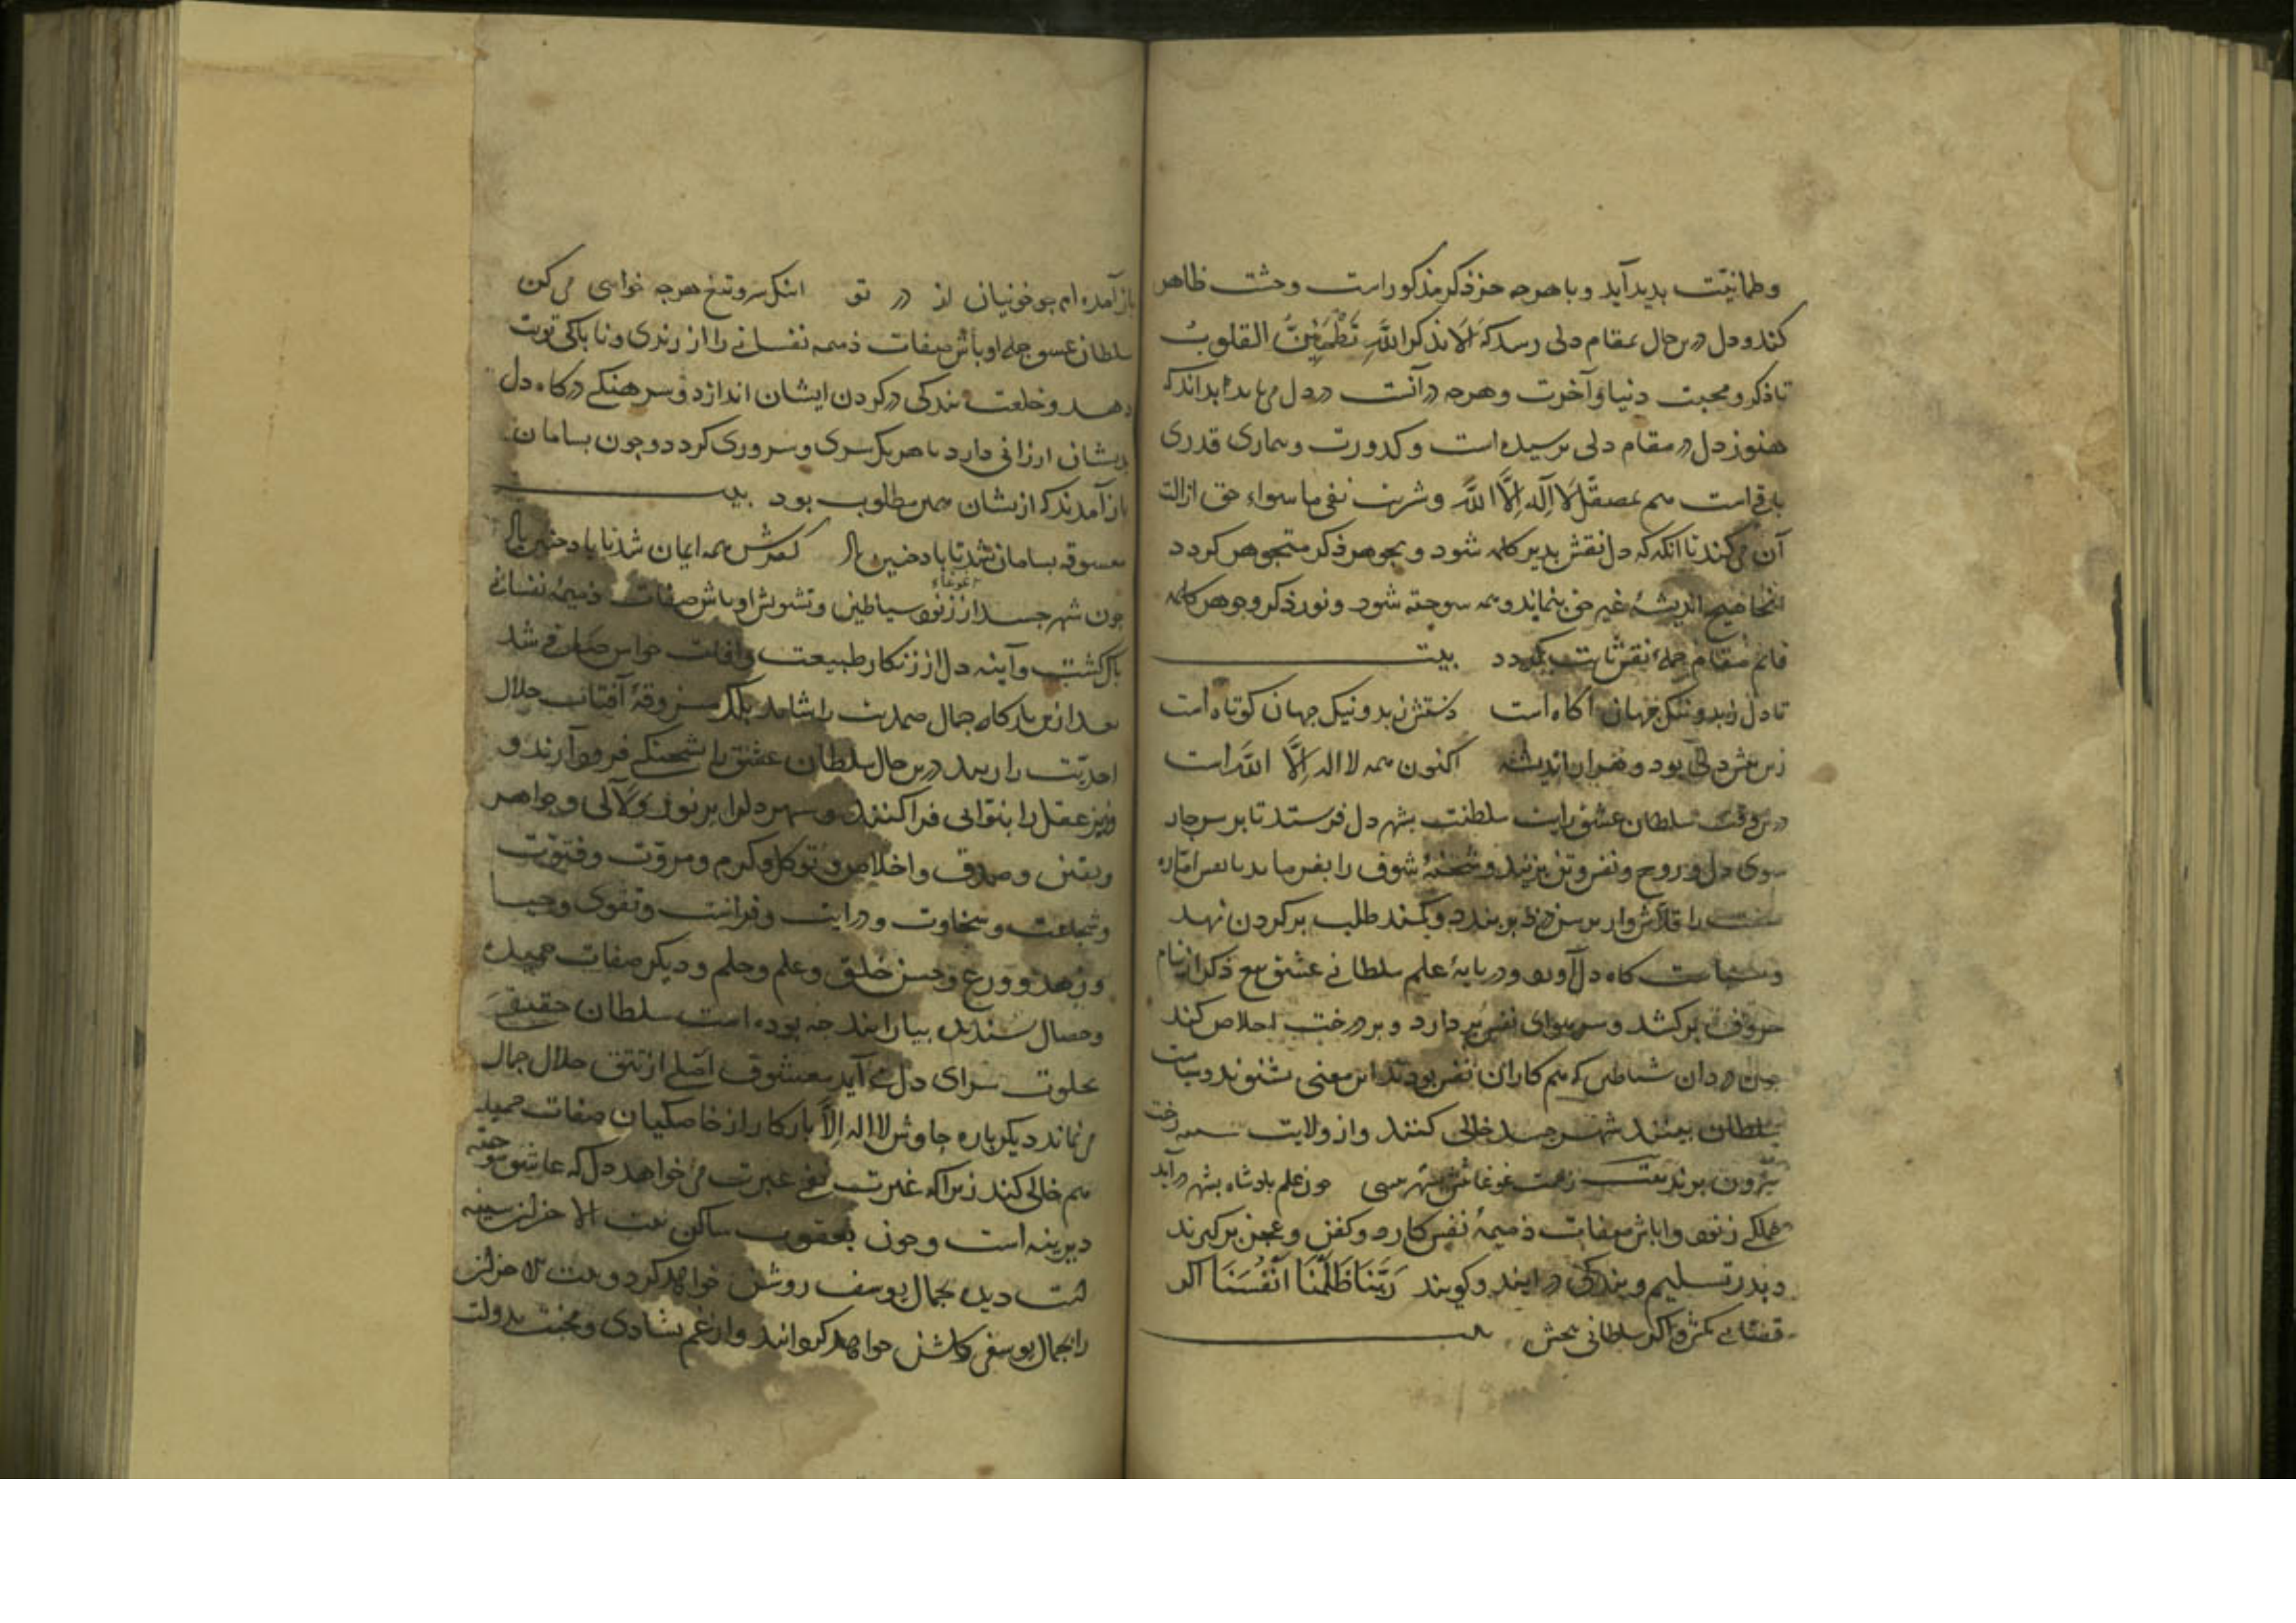 و طمانیّت بدید آید و با هرچه جز ذکر مذکور است وحشت ظاهر
کند و دل درین حال بمقام دلی رسد که اَلَا بذکر اللَّهِ تَطْمَئِنُّ القلوبُ
تا ذکر و محبت دنیا و آخرت و هرچه در آنست در دل می یابد بداند که
هنوز دل در مقام دلی نرسیده است و کدورت و بیماری قدری
باقی است هم بمصقل لَا اِلَهَ اِلَّا اللَّهُ و شربت نفی ما سواء حق ازالت
آن می کند تا انکه که دل نقش بدیر کلمه شود و بجوهر ذکر متجوهر کردد
انجا هیچ اندیشهٔ غیر حق نماند و همه سوخته شود و نور ذکر و جوهر کلمه
قایم مقام جملهٔ نقش ثابت کردد بیت
تا دل ز بد و نیک جهان آکاه است دستش ز بد و نیک جهان کوتاه است
زین بیش دلی بود و هزار اندیشه اکنون همه لا اله اِلَّا اللَّه است
درین وقت سلطان عشق رایت سلطنت بشهر دل فرستد تا بر سر چار
سوی دل و روح و نفس و تن بزنند و شحنهٔ شوق را بفرماید تا نفس امّاره
صفت را قلاش وار برسن درد بربندد و کمند طلب بر کردن نهد
و بسیاست کاه دل آورد و در پایهٔ علم سلطانی عشق بتیغ ذکر
حروف برکشد و سر هوای نفس بردارد و بر درخت اخلاص کند
دزدان شیاطین که هم کاران نفس بودند این معنی بشنوند و سیاست
سلطان ببینند شهر جسد خالی کنند و از ولایت سینه رخت
بیرون برند بیت زحمت غوغا بشهر بیش نبینی چون علم بادشاه بشهر درآید
جملکی رنود و اوباش صفات ذمیمهٔ نفس کارد و کفن و عجز برکیرند
و بدر تسلیم و بندکی درایند و کویند رَبَّنَا ظَلَمْنَا اَنْفُسَنَا اکر
قصابی بکش و اکر سلطانی ببخش بیت
باز آمده ام چو خونیان از در تو اینک سر و تیغ هرچه خواهی می کن
سلطان عشق جمله اوباش صفات ذمیمه نفسانی را از رندی و ناباکی توبت
دهد و خلعت بندکی در کردن ایشان اندازد و سرهنکی درکاه دل
بدیشان ارزانی دارد تا هر یک سری و سروری کردد و چون بسامان
باز آمدند که ازیشان همین مطلوب بود بیت
معشوقه بسامان شد تا باد چنین باد کفرش همه ایمان شد تا باد چنین باد
چون شهر جسد از غوغاء رنود شیاطین و تشویش اوباش صفات ذمیمهٔ نفسانی
باک کشت و آینه دل از زنکار طبیعت و افات حواس صافی شد
بعد ازین بارکاه جمال صمدیت را شاید بلکه مشروقهٔ آفتاب جلال
احدیّت را زیبد درین حال سلطان عشق را بشحنکی فرو آرند و
وزیر عقل را بنوابی فرا کنند و شهر دل را بر نور و لآلی و جواهر
و یقین و صدق و اخلاص و توکل و کرم و مروّت و فتوّت
و شجاعت و سخاوت و درایت و فراست و تقوی و حیا
و زهد و ورع و حسن خلق و علم و حلم و دیکر صفات حمیده
و خصال بسندیده بیارایند چه بوده است سلطان حقیقی
بخلوت سرای دل می آید معشوق اصلی از تتق جلال جمال
می نماید دیکر باره چاوش لا اله اِلَّا بارکاه را از خاصکیان صفات حمیده
هم خالی کند زیرا که غیرت نفی غیریت می خواهد دل که عاشق سوخته
دیرینه است و چون یعقوب ساکن بیت الاحزان سینه
است دیده بجمال یوسف روشن خواهد کرد و بیت الاحزان
را بجمال یوسفی کلشن خواهد کردانید و از غم بشادی و محنت بدولت